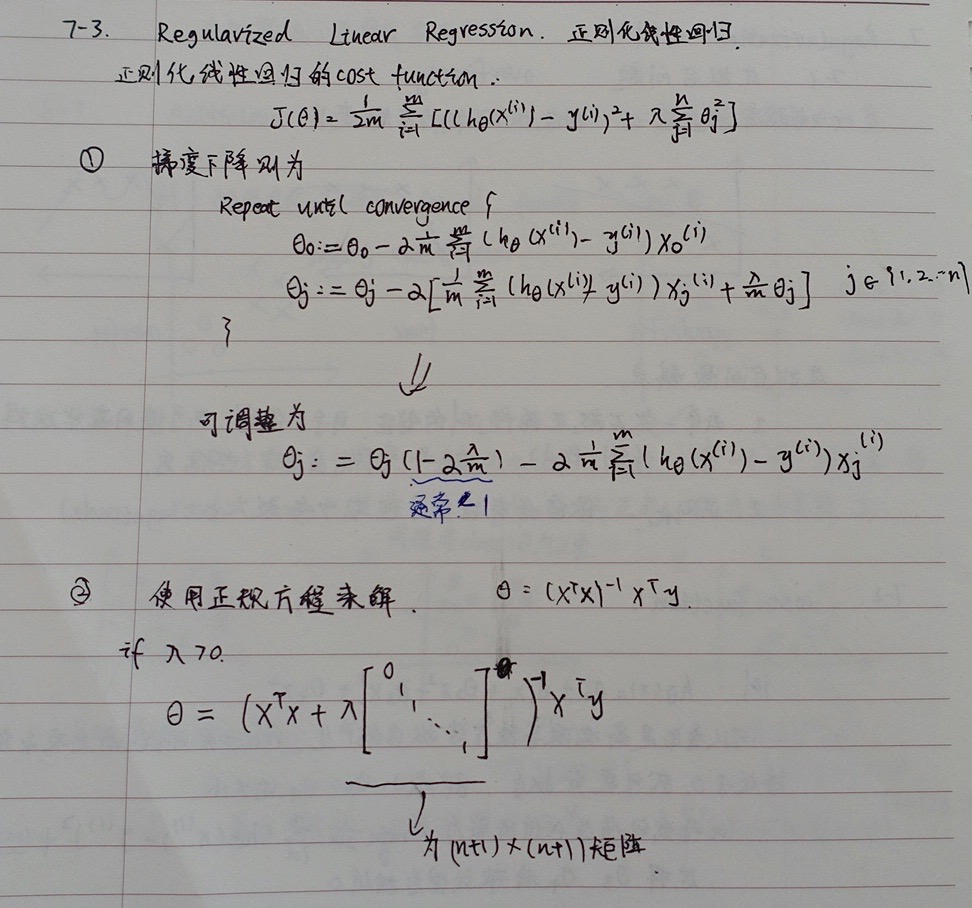 7-3. Regularized Linear Regression. 正则化线性回归.
正则化线性回归的cost function:
J(θ) = 1/2m ∑_{i=1}^{m} [((hθ(x^(i)) - y^(i))² + λ ∑_{j=1}^{n} θj²]
① 梯度下降则为
Repeat until convergence {
θ0 := θ0 - α 1/m ∑_{i=1}^{m} (hθ(x^(i)) - y^(i)) x0^(i)
θj := θj - α [1/m ∑_{i=1}^{m} (hθ(x^(i)) - y^(i)) xj^(i) + λ/m θj] j ∈ {1, 2, ...n}
}
⇓
可调整为
θj := θj (1 - α λ/m) - α 1/m ∑_{i=1}^{m} (hθ(x^(i)) - y^(i)) xj^(i)
通常 < 1
② 使用正规方程来解. θ = (X^T X)^-1 X^T y.
if λ > 0.
θ = (X^T X + λ [0 1 1 ⋱ 1])^-1 X^T y
为 (n+1) × (n+1) 矩阵